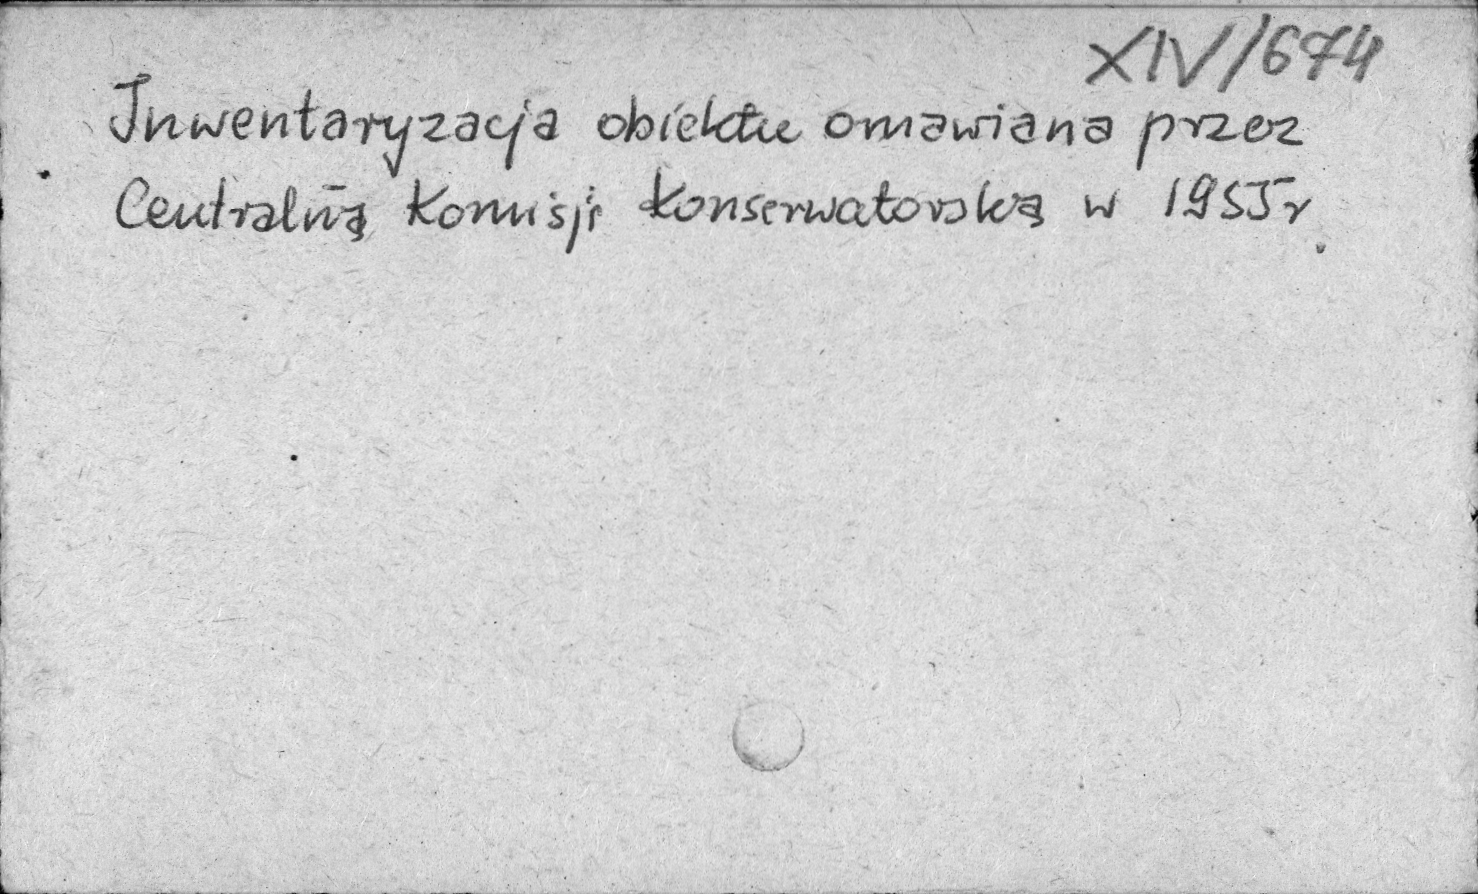 XIV/674
Inwentaryzacja obiektu omawiana przez
Centralną Komisji Konserwatorską w 1955r.